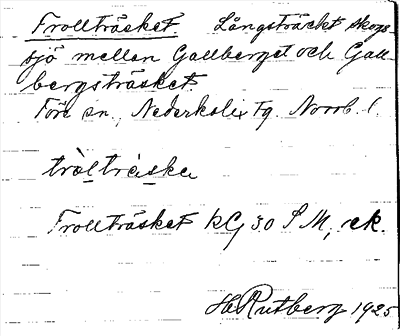 Trollträsket. Långsträckt skogs-
sjö mellan Gallberget och Gall-
bergsträsket.
Töre sn., Nederkalix tg. Norrb. l.
trålträska
Trollträsket kG 30 S M, ek.
HRutberg 1925